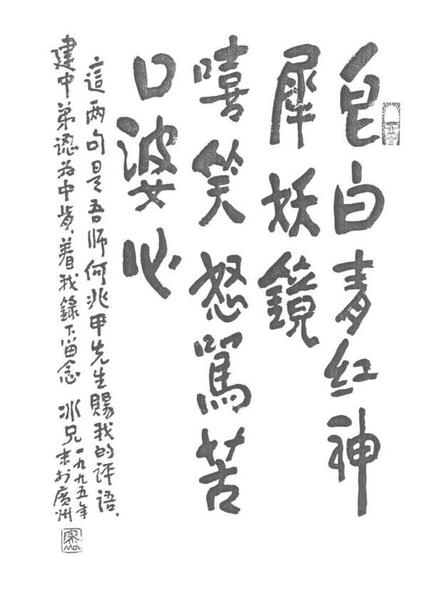 皂白青红神
犀妖鏡
嘻笑怒罵苦
口婆心
這两句是吾师何兆甲先生賜我的评语，
建中弟認为中肯，着我錄下留念 冰兄 一九九五年
末於廣州